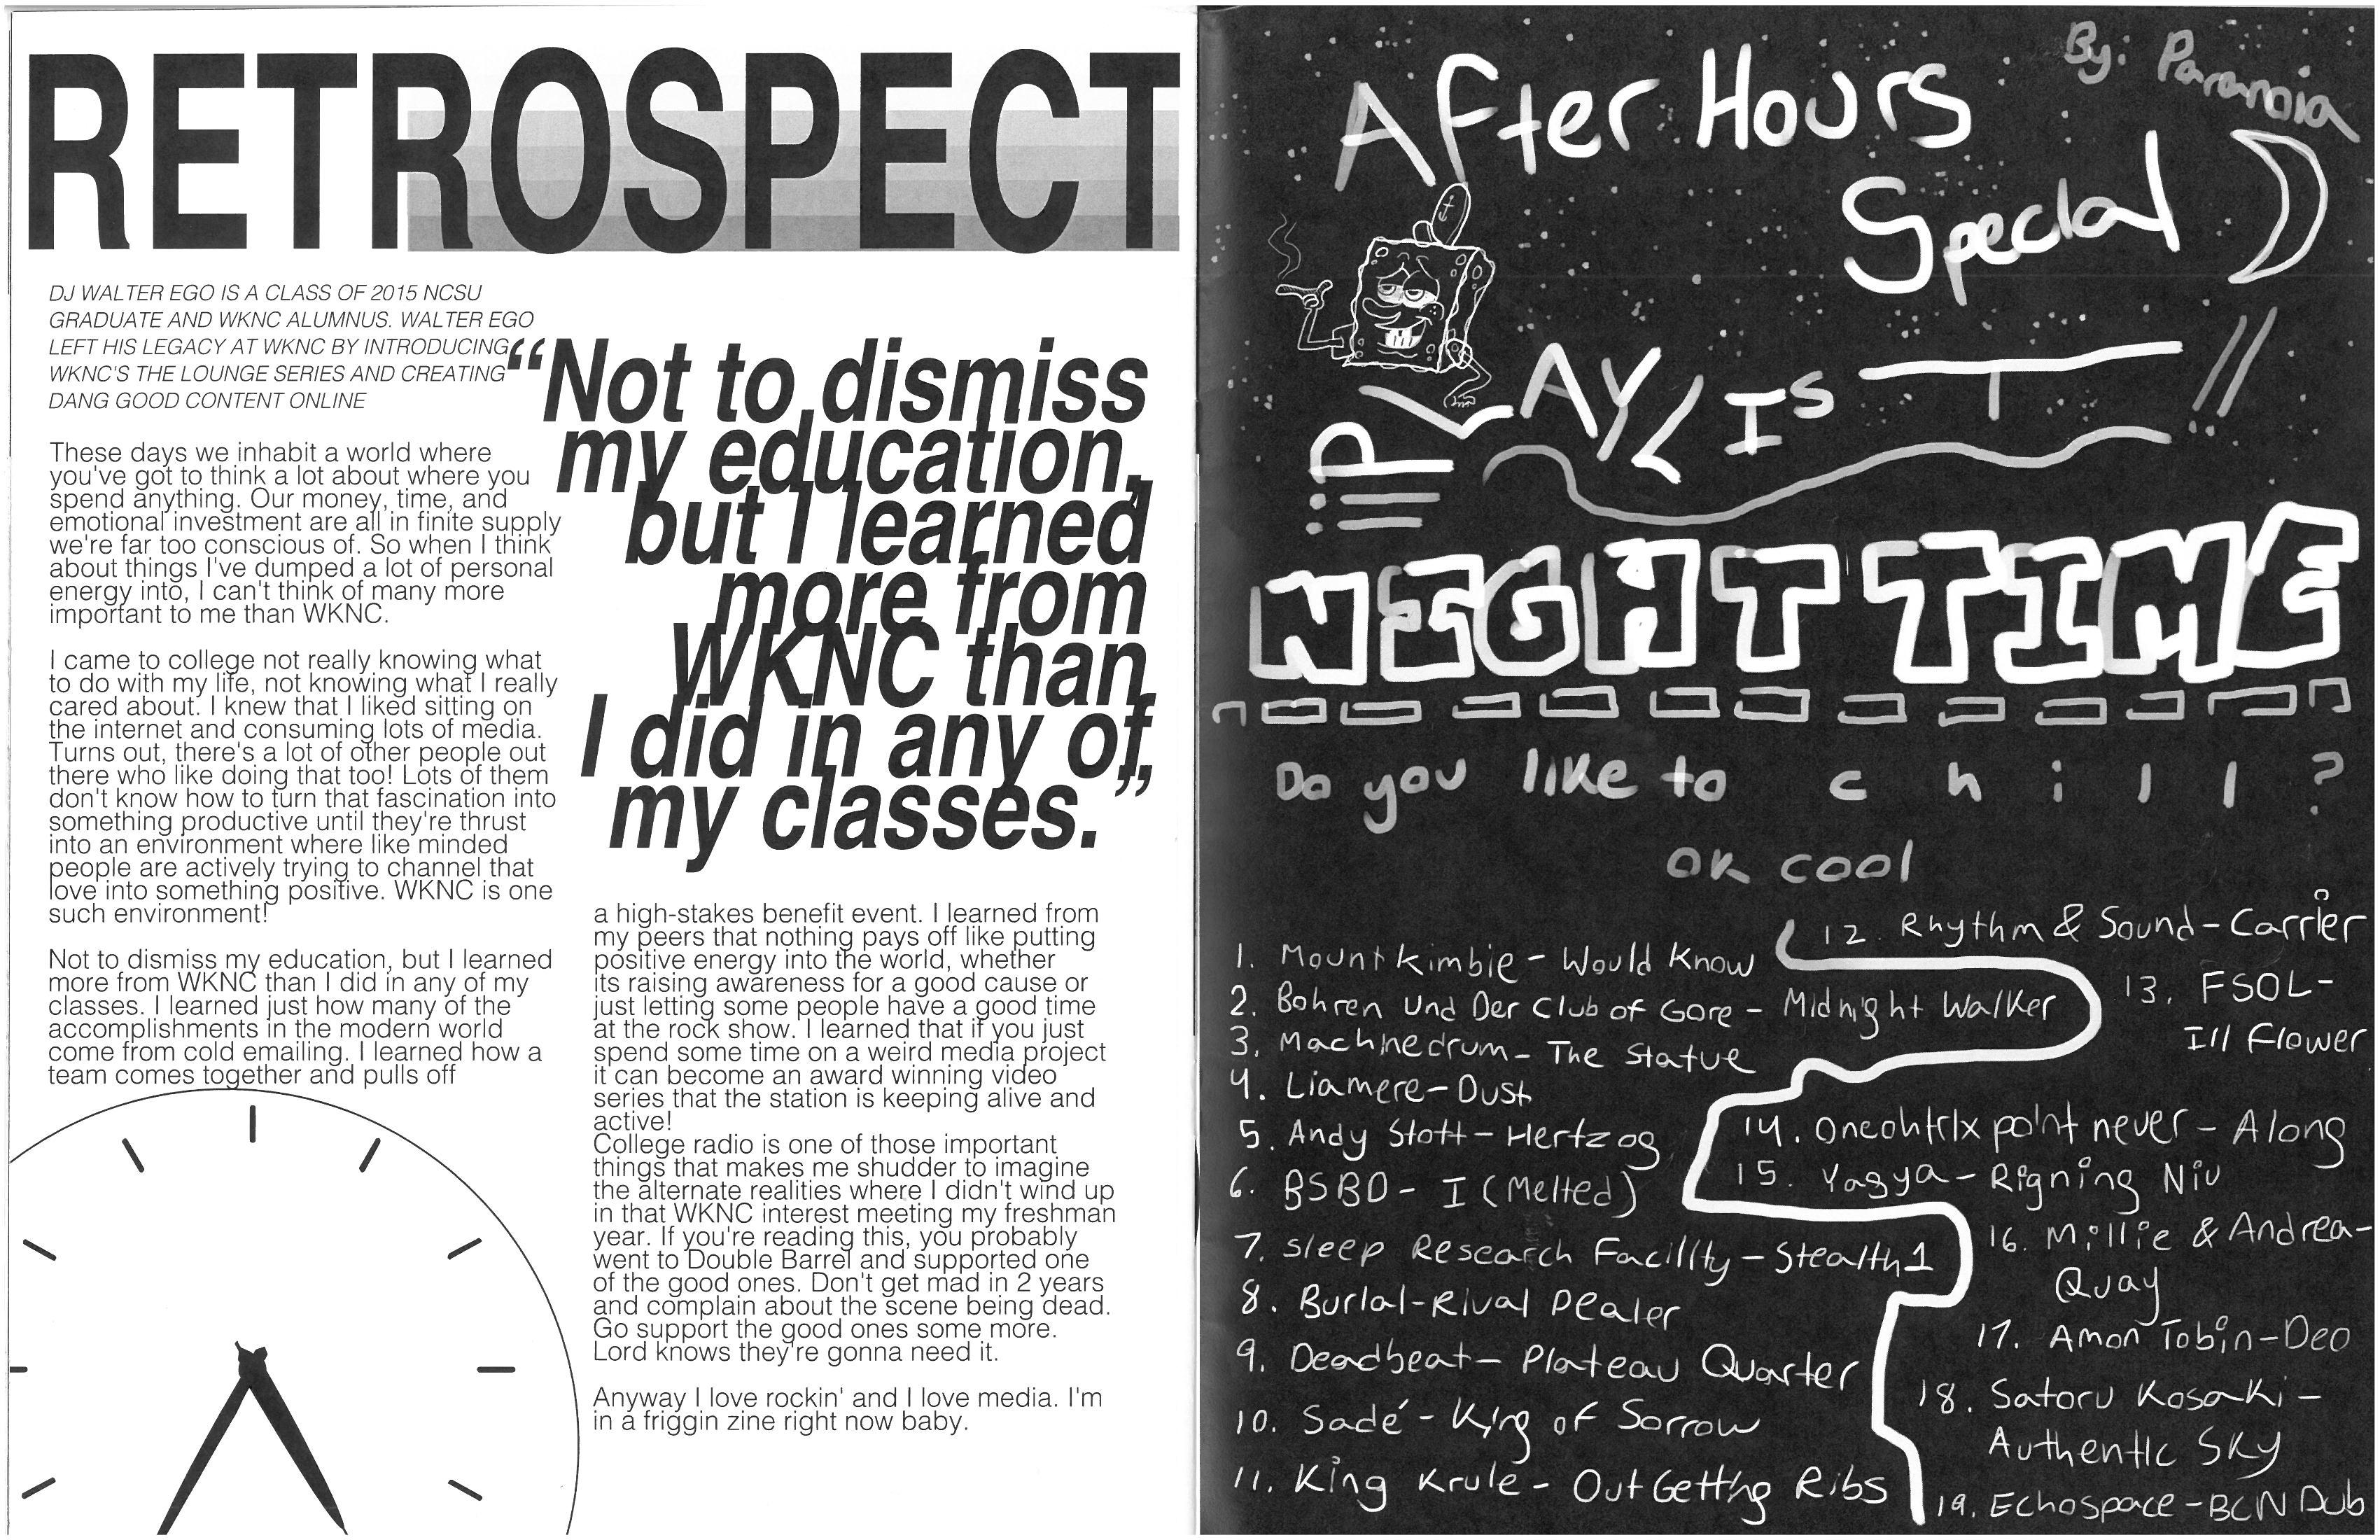 RETROSPECT
DJ WALTER EGO IS A CLASS OF 2015 NCSU
GRADUATE AND WKNC ALUMNUS. WALTER EGO
LEFT HIS LEGACY AT WKNC BY INTRODUCING
WKNC'S THE LOUNGE SERIES AND CREATING
DANG GOOD CONTENT ONLINE
“Not to dismiss
my education,
but I learned
more from
WKNC than
I did in any of
my classes.”
These days we inhabit a world where
you've got to think a lot about where you
spend anything. Our money, time, and
emotional investment are all in finite supply
we're far too conscious of. So when I think
about things I've dumped a lot of personal
energy into, I can't think of many more
important to me than WKNC.
I came to college not really knowing what
to do with my life, not knowing what I really
cared about. I knew that I liked sitting on
the internet and consuming lots of media.
Turns out, there's a lot of other people out
there who like doing that too! Lots of them
don't know how to turn that fascination into
something productive until they're thrust
into an environment where like minded
people are actively trying to channel that
love into something positive. WKNC is one
such environment!
Not to dismiss my education, but I learned
more from WKNC than I did in any of my
classes. I learned just how many of the
accomplishments in the modern world
come from cold emailing. I learned how a
team comes together and pulls off
a high-stakes benefit event. I learned from
my peers that nothing pays off like putting
positive energy into the world, whether
its raising awareness for a good cause or
just letting some people have a good time
at the rock show. I learned that if you just
spend some time on a weird media project
it can become an award winning video
series that the station is keeping alive and
active!
College radio is one of those important
things that makes me shudder to imagine
the alternate realities where I didn't wind up
in that WKNC interest meeting my freshman
year. If you're reading this, you probably
went to Double Barrel and supported one
of the good ones. Don't get mad in 2 years
and complain about the scene being dead.
Go support the good ones some more.
Lord knows they're gonna need it.
Anyway I love rockin' and I love media. I'm
in a friggin zine right now baby.
By: Paranoia
After Hours
Special
PLAYLIST!!
NIGHT TIME
Do you like to chill?
OK cool
1. Mount Kimbie - Would Know
2. Bohren Und Der Club of Gore - Midnight Walker
3. Machinedrum - The Statue
4. Liamere - Dust
5. Andy Stott - Hertzog
6. BSBD - I (Melted)
7. Sleep Research Facility - Stealth 1
8. Burial - Rival Dealer
9. Deadbeat - Plateau Quarter
10. Sadé - King of Sorrow
11. King Krule - Out Getting Ribs
12. Rhythm & Sound - Carrier
13. FSOL -
Ill Flower
14. Oneohtrix point never - Along
15. Yagya - Rigning Níu
16. Millie & Andrea -
Quay
17. Amon Tobin - Deo
18. Satoru Kosaki -
Authentic Sky
19. Echospace - BCN Dub